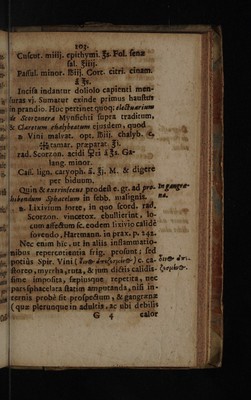 203.
Cuscut. miiij. epithymi. ʒs. Fol. senæ
sal. ʒiiij.
Passul. minor. Cort. citri. cinam.
Incisa indantur doliolo capienti men-
suras vj. Sumatur exinde primus haustus
in prandio. Huc pertinet quoq; electuarium
de Scorzonera Mynsichti supra traditum,
& Claretum chalybeatum ejusdem, quod
Vini malvat. opt. chalyb.
tamar. præparat. ʒj.
rad. Scorzon. acidi Ga-
lang. minor.
Cass. lign. caryoph. ā. ʒj. M. & digere
per biduum.
Quin & extrinsecus prodest e. gr. ad pro-
hibendum Sphacelum in febb. malignis.
Lixivium forte, in quo scord. rad.
Scorzon. vincetox. ebullierint, lo-
cum affectum sc. eodem lixivio calidè
fovendo, Hartmann. in prax. p. 242.
Nec enim hîc, ut in aliis inflammatio-
nibus repercutientia frig. prosunt; sed
potiùs Spir. Vini c. ca-
storeo, myrrha, ruta, & jam dictis calidis-
simè imposita, sæpiusque repetita, nec
pars sphacelata statim amputanda, nisi in-
terna probè sit prospectum, & gangræna
(quæ plerunque in adultis, ac ubi debilis
G 4 calor
In gangræ-
na.